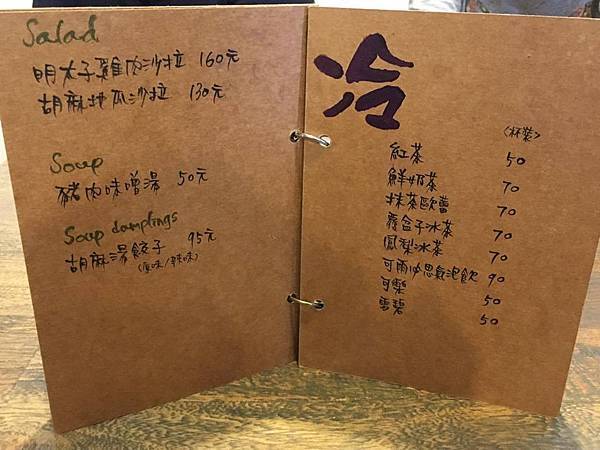 Salad
明太子雞肉沙拉 160元
胡麻地瓜沙拉 130元
Soup
豬肉味噌湯 50元
Soup dumplings
胡麻湯餃子 95元
(原味/辣味)
冷
<杯裝>
紅茶 50
鮮奶茶 70
抹茶歐蕾 70
覆盆子冰茶 70
鳳梨冰茶 70
可爾必思氣泡飲 90
可樂 50
雪碧 50